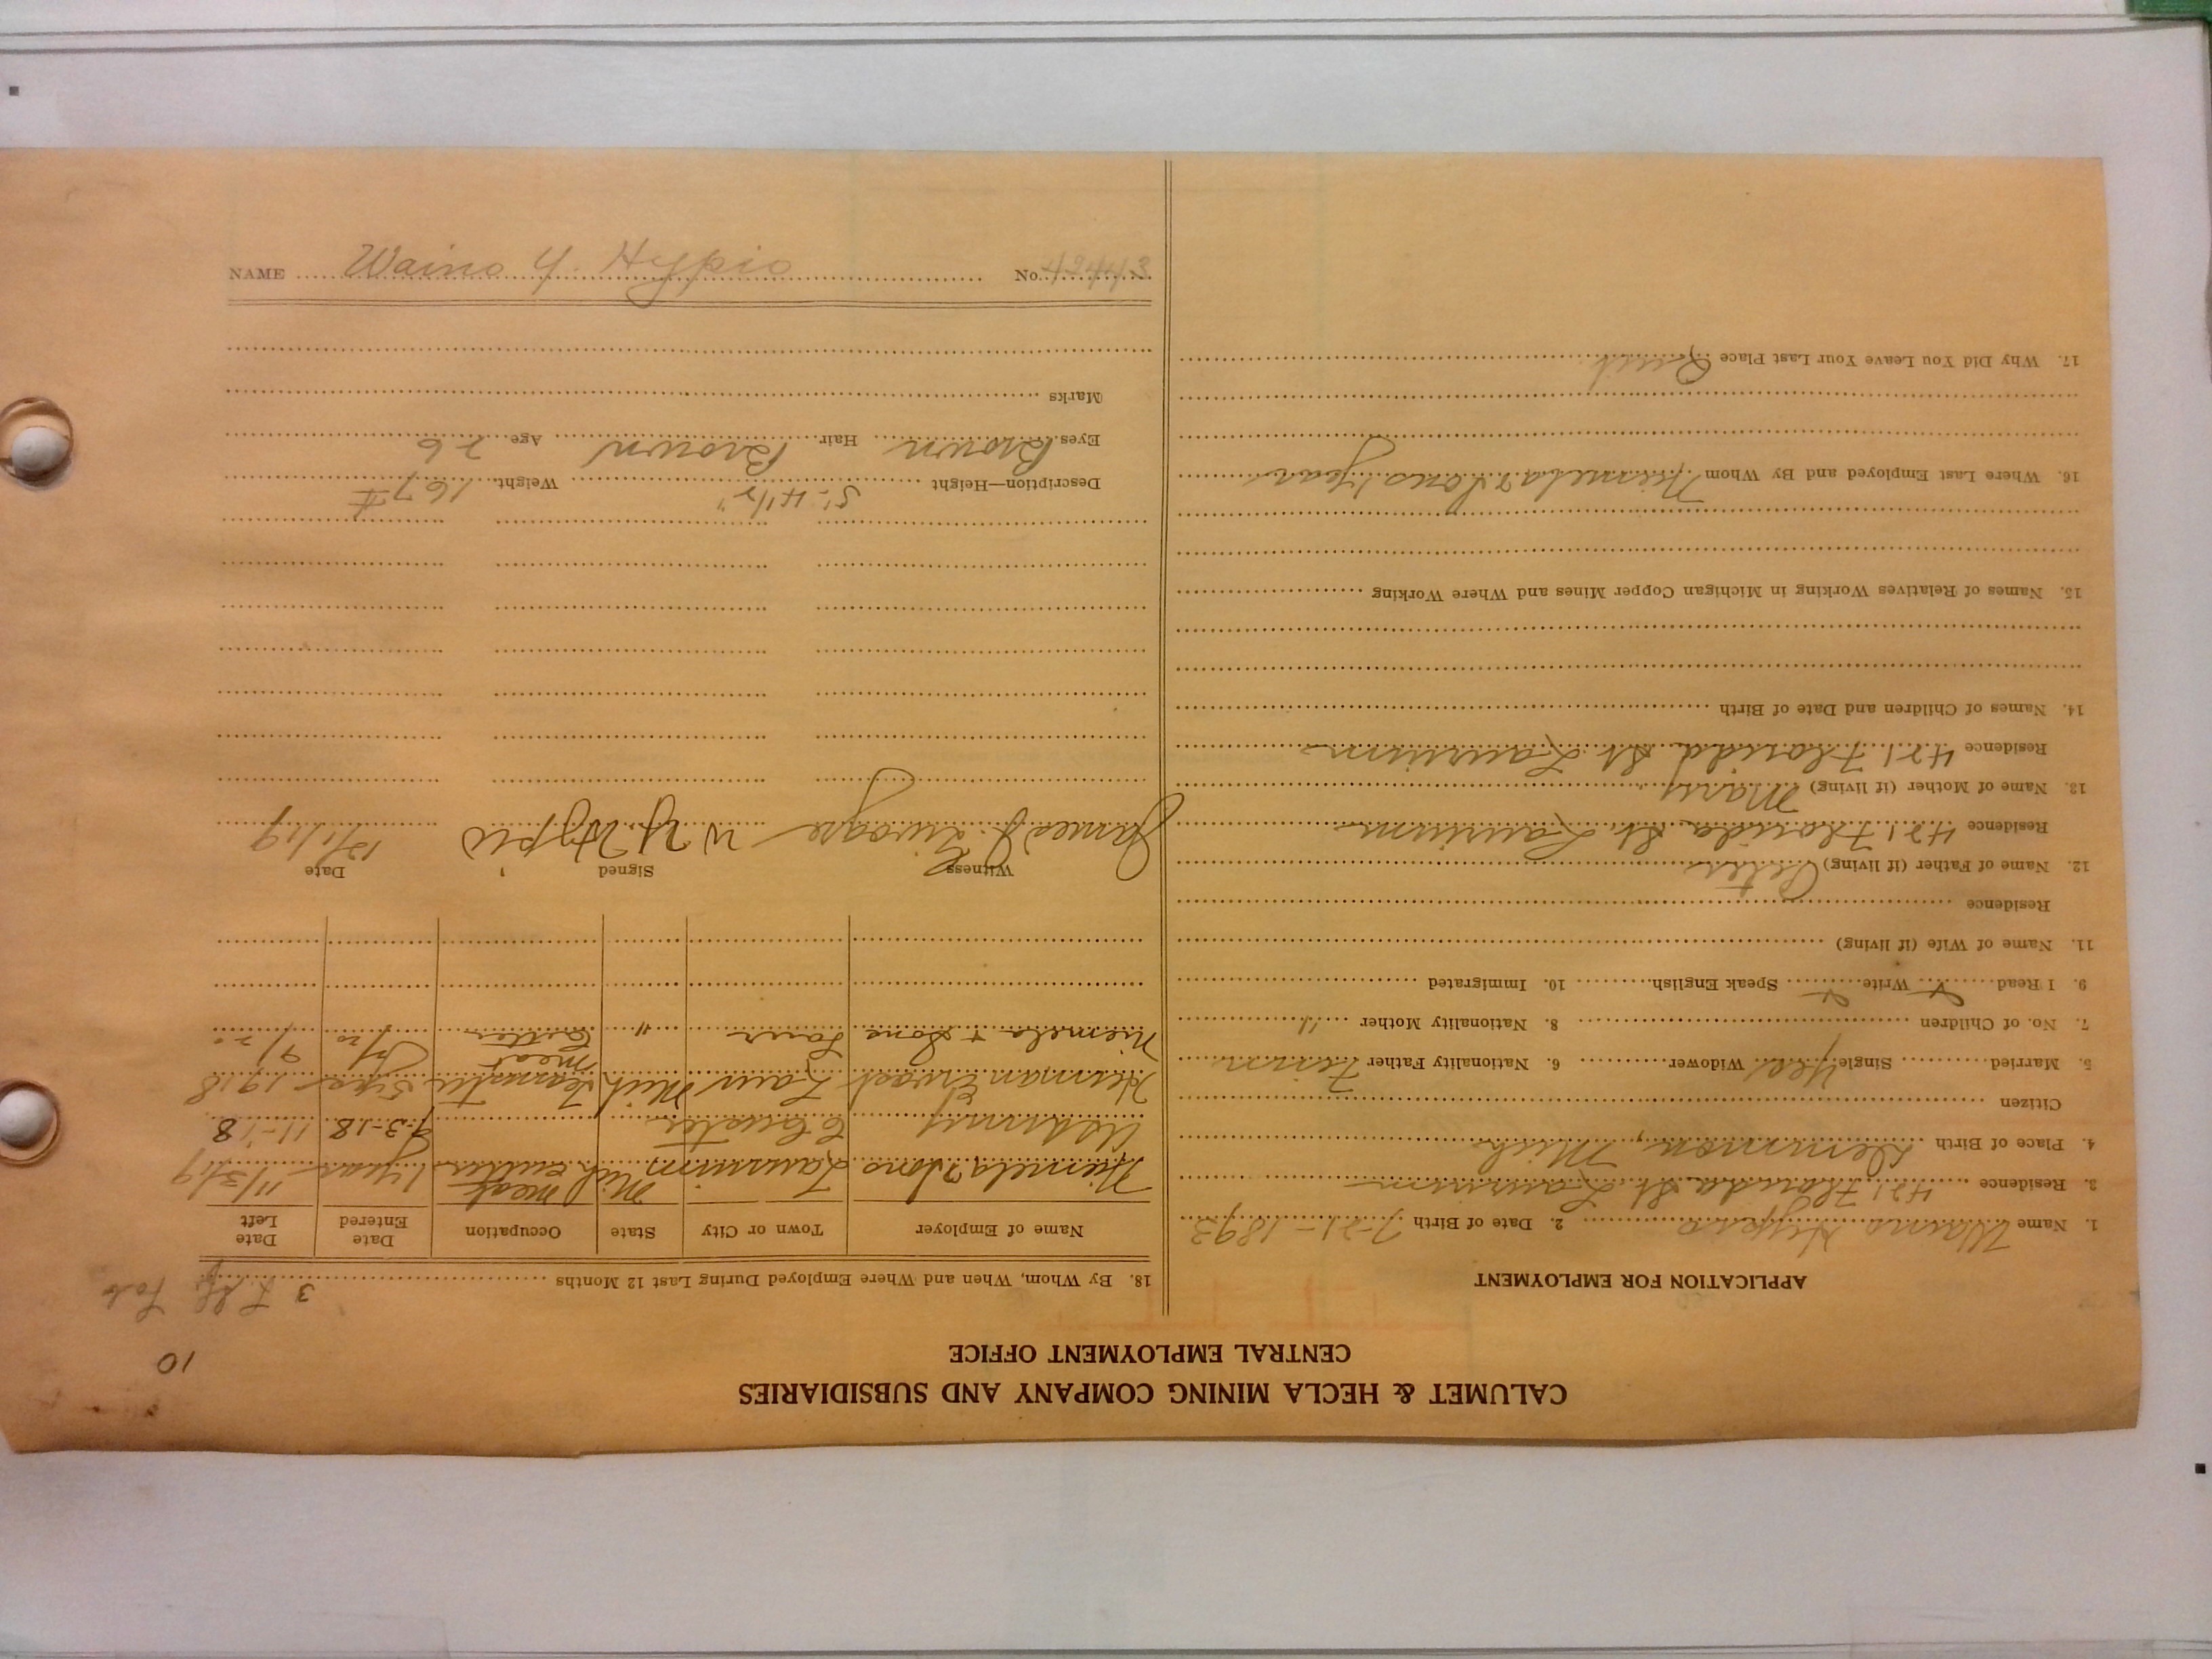 CALUMET & HECLA MINING COMPANY AND SUBSIDIARIES
CENTRAL EMPLOYMENT OFFICE
10
APPLICATION FOR EMPLOYMENT
1. Name Waino Hypio 2. Date of Birth 7-21-1893
3. Residence 421 Florida St. Laurium
4. Place of Birth Mich
Citizen
5. Married Single Yes Widower 6. Nationality Father Finn
7. No. of Children 8. Nationality Mother "
9. I Read ✓ Write ✓ Speak English 10. Immigrated
11. Name of Wife (if living)
Residence
12. Name of Father (if living) Peter
Residence 421 Florida St. Laurium
13. Name of Mother (if living) Mary
Residence 421 Florida St. Laurium
14. Names of Children and Date of Birth
15. Names of Relatives Working in Michigan Copper Mines and Where Working
16. Where Last Employed and By Whom Niemela & Sons 1 year
17. Why Did You Leave Your Last Place Quit
3
18. By Whom, When and Where Employed During Last 12 Months
Name of Employer Town or City State Occupation Date Entered Date Left
Niemela & Sons Laurium Mich meat cutter 1 year 11/3/19
U S Army C Custer 9-3-18 11-18
Herman Laur Mich Teamster 5 yrs 1918
Niemela + Sons Laur " meat Cutter 9/20
Witness Signed Date
James J. W Y. Hypio 12/1/19
Description—Height 5'-4 1/2" Weight 167 #
Eyes Brown Hair Brown Age 26
Marks
NAME Waino Y. Hypio No. 42443